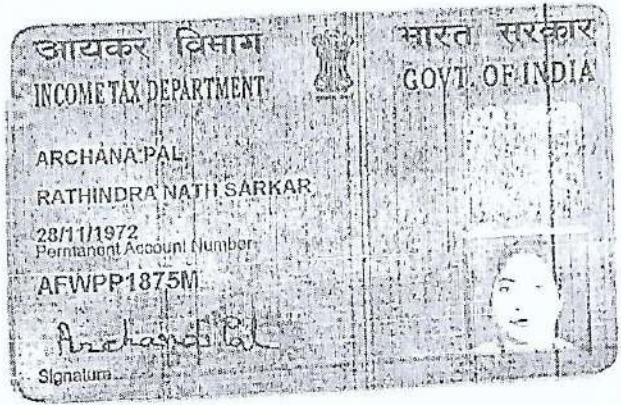 आयकर विभाग
भारत सरकार
INCOME TAX DEPARTMENT
GOVT. OF INDIA
ARCHANA PAL
RATHINDRA NATH SARKAR
28/11/1972
Permanent Account Number
AFWPP1875M
Archana Pal
Signature